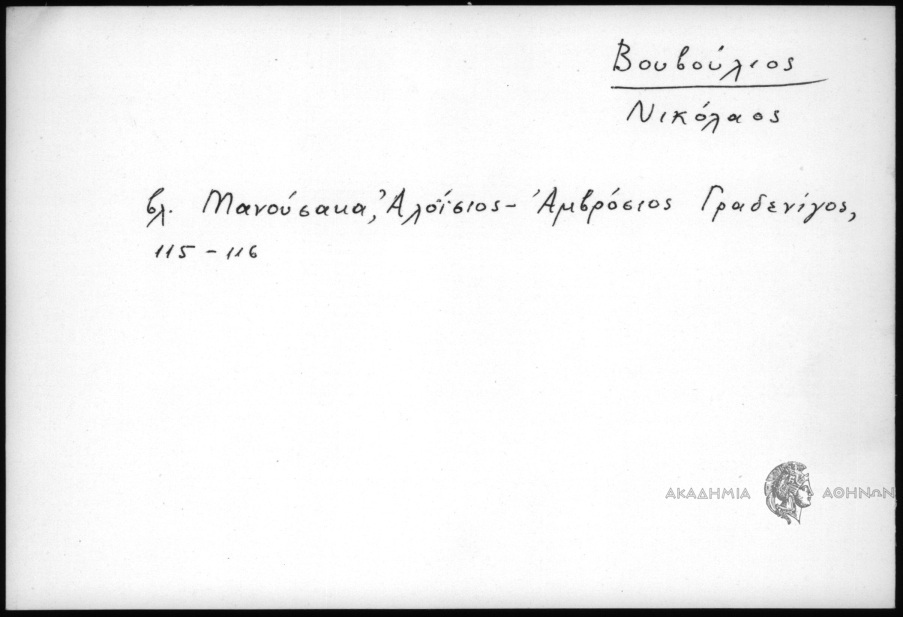 Βουβούλιος
Νικόλαος
βλ. Μανούσακα, Ἀλοΐσιος - Ἀμβρόσιος Γραδενίγος,
115 - 116
ΑΚΑΔΗΜΙΑ ΑΘΗΝΩΝ